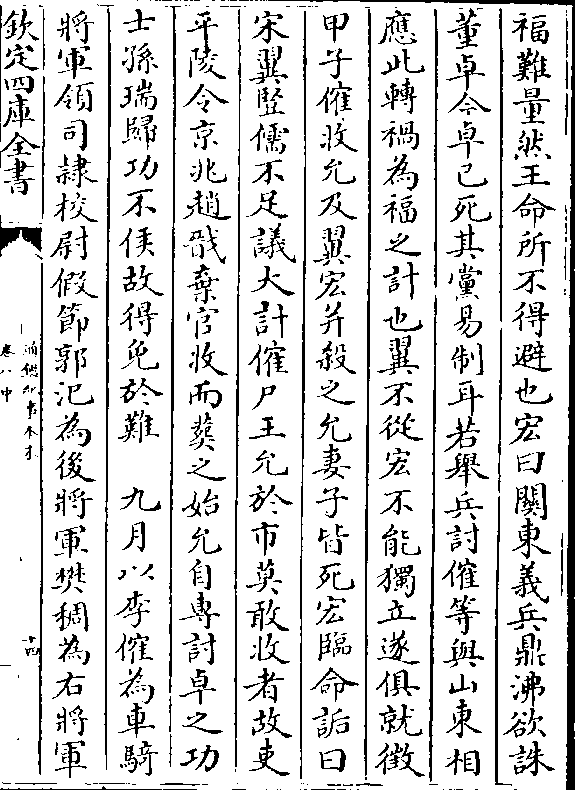 福難量然王命所不得避也宏曰關東義兵鼎沸欲誅
董卓今卓已死其黨易制耳若舉兵討傕等與山東相
應此轉禍為福之計也翼不從宏不能獨立遂俱就徵
甲子傕收允及翼宏并殺之允妻子皆死宏臨命詬曰
宋翼豎儒不足議大計傕尸王允於市莫敢收者故吏
平陵令京兆趙戩棄官收而葬之始允自專討卓之功
士孫瑞歸功不侯故得免於難　九月以李傕為車騎
將軍領司隸校尉假節郭汜為後將軍樊稠為右將軍
欽定四庫全書
通鑑紀事本末
卷八中
十四